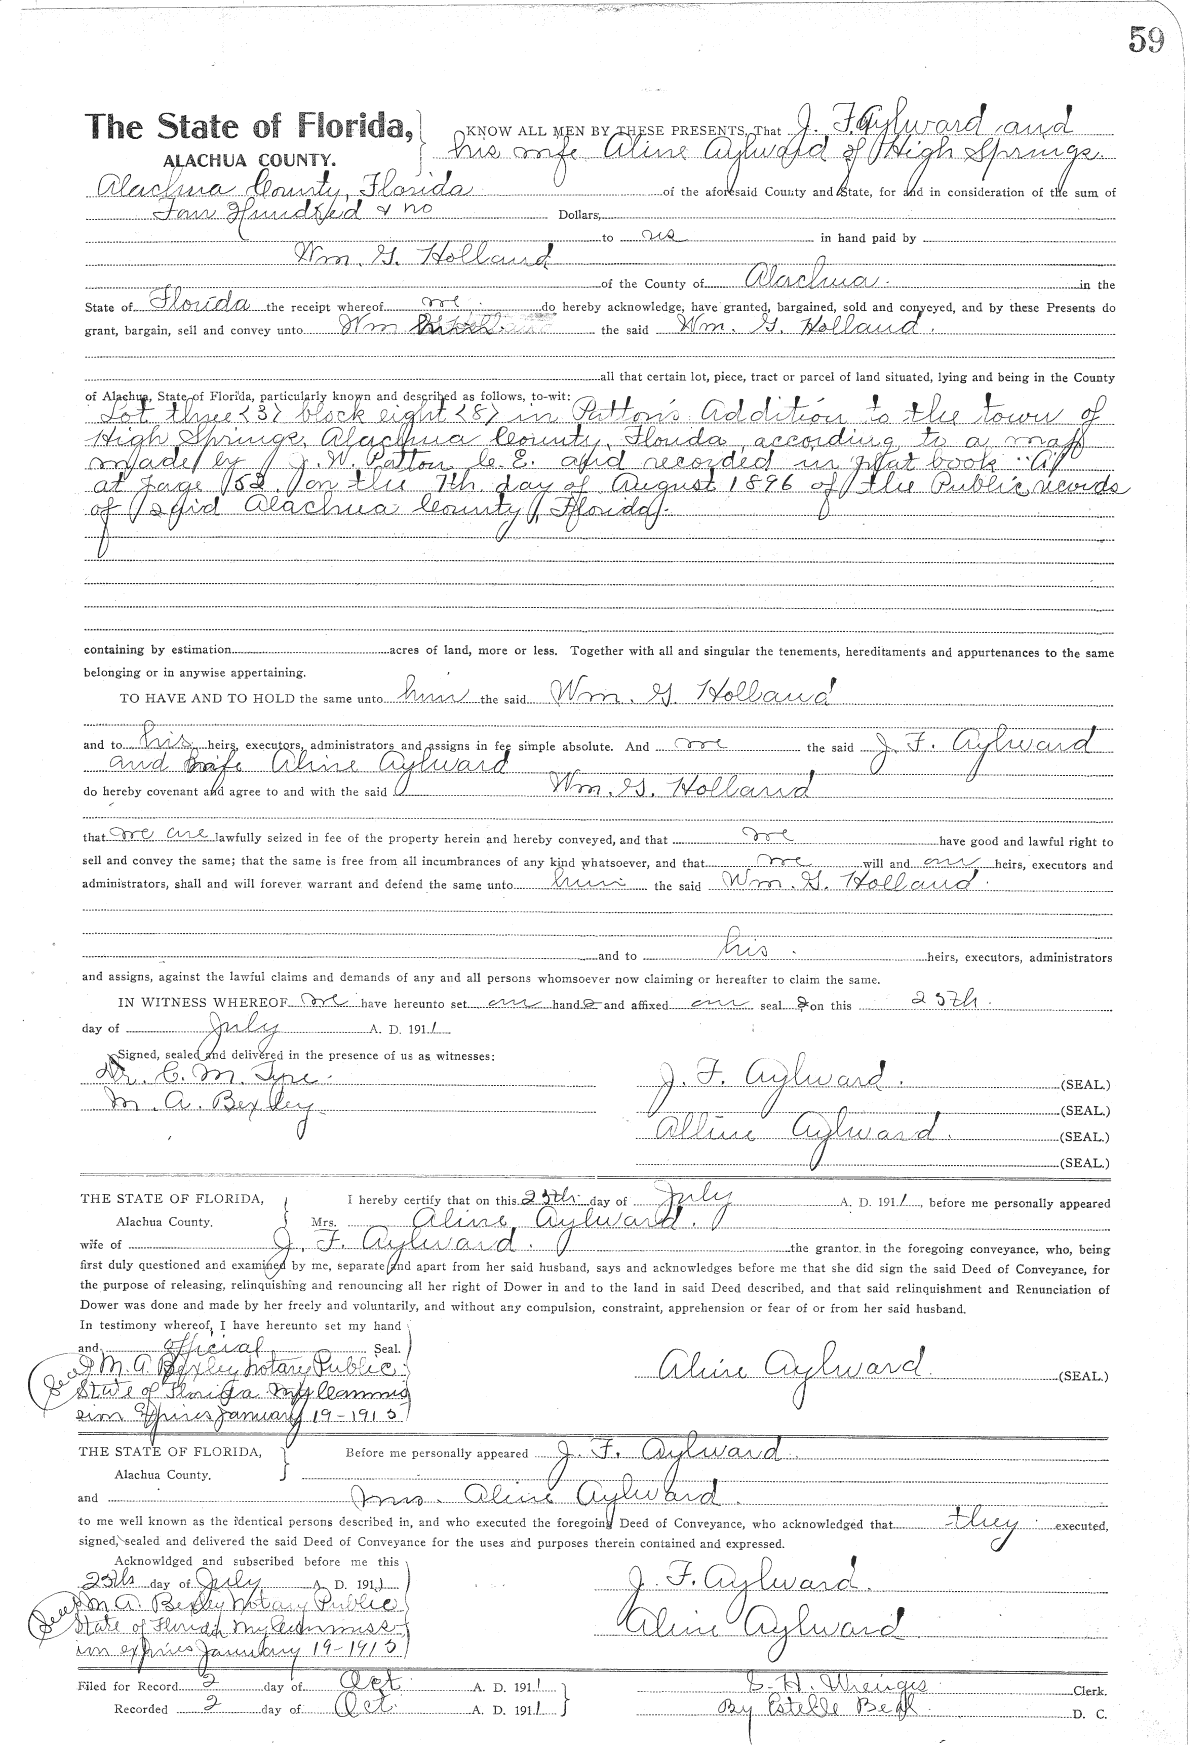 59
The State of Florida, KNOW ALL MEN BY THESE PRESENTS, That J. F. Aylward and
ALACHUA COUNTY. his wife Aline Aylward of High Springs
Alachua County, Florida of the aforesaid County and State, for and in consideration of the sum of
Four Hundred & no Dollars,
to us in hand paid by
Wm. G. Holland
of the County of Alachua in the
State of Florida the receipt whereof we do hereby acknowledge, have granted, bargained, sold and conveyed, and by these Presents do
grant, bargain, sell and convey unto Wm the said Wm. G. Holland.
all that certain lot, piece, tract or parcel of land situated, lying and being in the County
of Alachua, State of Florida, particularly known and described as follows, to-wit:
Lot three (3) block eight (8) in Patton's Addition to the town of
High Springs, Alachua County, Florida according to a map
made by J. W. Patton C. E. and recorded in plat book "A"
at page 52 on the 7th day of August 1896 of the Public records
of said Alachua County, Florida.
containing by estimation acres of land, more or less. Together with all and singular the tenements, hereditaments and appurtenances to the same
belonging or in anywise appertaining.
TO HAVE AND TO HOLD the same unto him the said Wm. G. Holland
and to his heirs, executors, administrators and assigns in fee simple absolute. And we the said J. F. Aylward
and wife Aline Aylward
do hereby covenant and agree to and with the said Wm. G. Holland
that we are lawfully seized in fee of the property herein and hereby conveyed, and that we have good and lawful right to
sell and convey the same; that the same is free from all incumbrances of any kind whatsoever, and that we will and our heirs, executors and
administrators, shall and will forever warrant and defend the same unto him the said Wm. G. Holland.
and to his heirs, executors, administrators
and assigns, against the lawful claims and demands of any and all persons whomsoever now claiming or hereafter to claim the same.
IN WITNESS WHEREOF we have hereunto set our hand s and affixed our seal s on this 25th
day of July A. D. 1911
Signed, sealed and delivered in the presence of us as witnesses:
Dr. C. M. Tyre. J. F. Aylward. (SEAL.)
M. A. Bexley (SEAL.)
Alline Aylward. (SEAL.)
(SEAL.)
THE STATE OF FLORIDA, I hereby certify that on this 25th day of July A. D. 1911, before me personally appeared
Alachua County. Mrs. Aline Aylward.
wife of J. F. Aylward. the grantor in the foregoing conveyance, who, being
first duly questioned and examined by me, separate and apart from her said husband, says and acknowledges before me that she did sign the said Deed of Conveyance, for
the purpose of releasing, relinquishing and renouncing all her right of Dower in and to the land in said Deed described, and that said relinquishment and Renunciation of
Dower was done and made by her freely and voluntarily, and without any compulsion, constraint, apprehension or fear of or from her said husband.
In testimony whereof, I have hereunto set my hand
and official Seal.
Seal M. A. Bexley Notary Public Aline Aylward. (SEAL)
State of Florida My Commis
sion Expires January 19-1915
THE STATE OF FLORIDA, Before me personally appeared J. F. Aylward.
Alachua County.
and Mrs. Aline Aylward.
to me well known as the identical persons described in, and who executed the foregoing Deed of Conveyance, who acknowledged that they executed,
signed, sealed and delivered the said Deed of Conveyance for the uses and purposes therein contained and expressed.
Acknowldged and subscribed before me this
25th day of July A. D. 1911 J. F. Aylward.
Seal M. A. Bexley Notary Public Aline Aylward
State of Florida My Commiss-
ion expires January 19-1915
Filed for Record 2 day of Oct A. D. 1911 S. H. Wienges Clerk.
Recorded 2 day of Oct A. D. 1911 By Estelle Beal D. C.